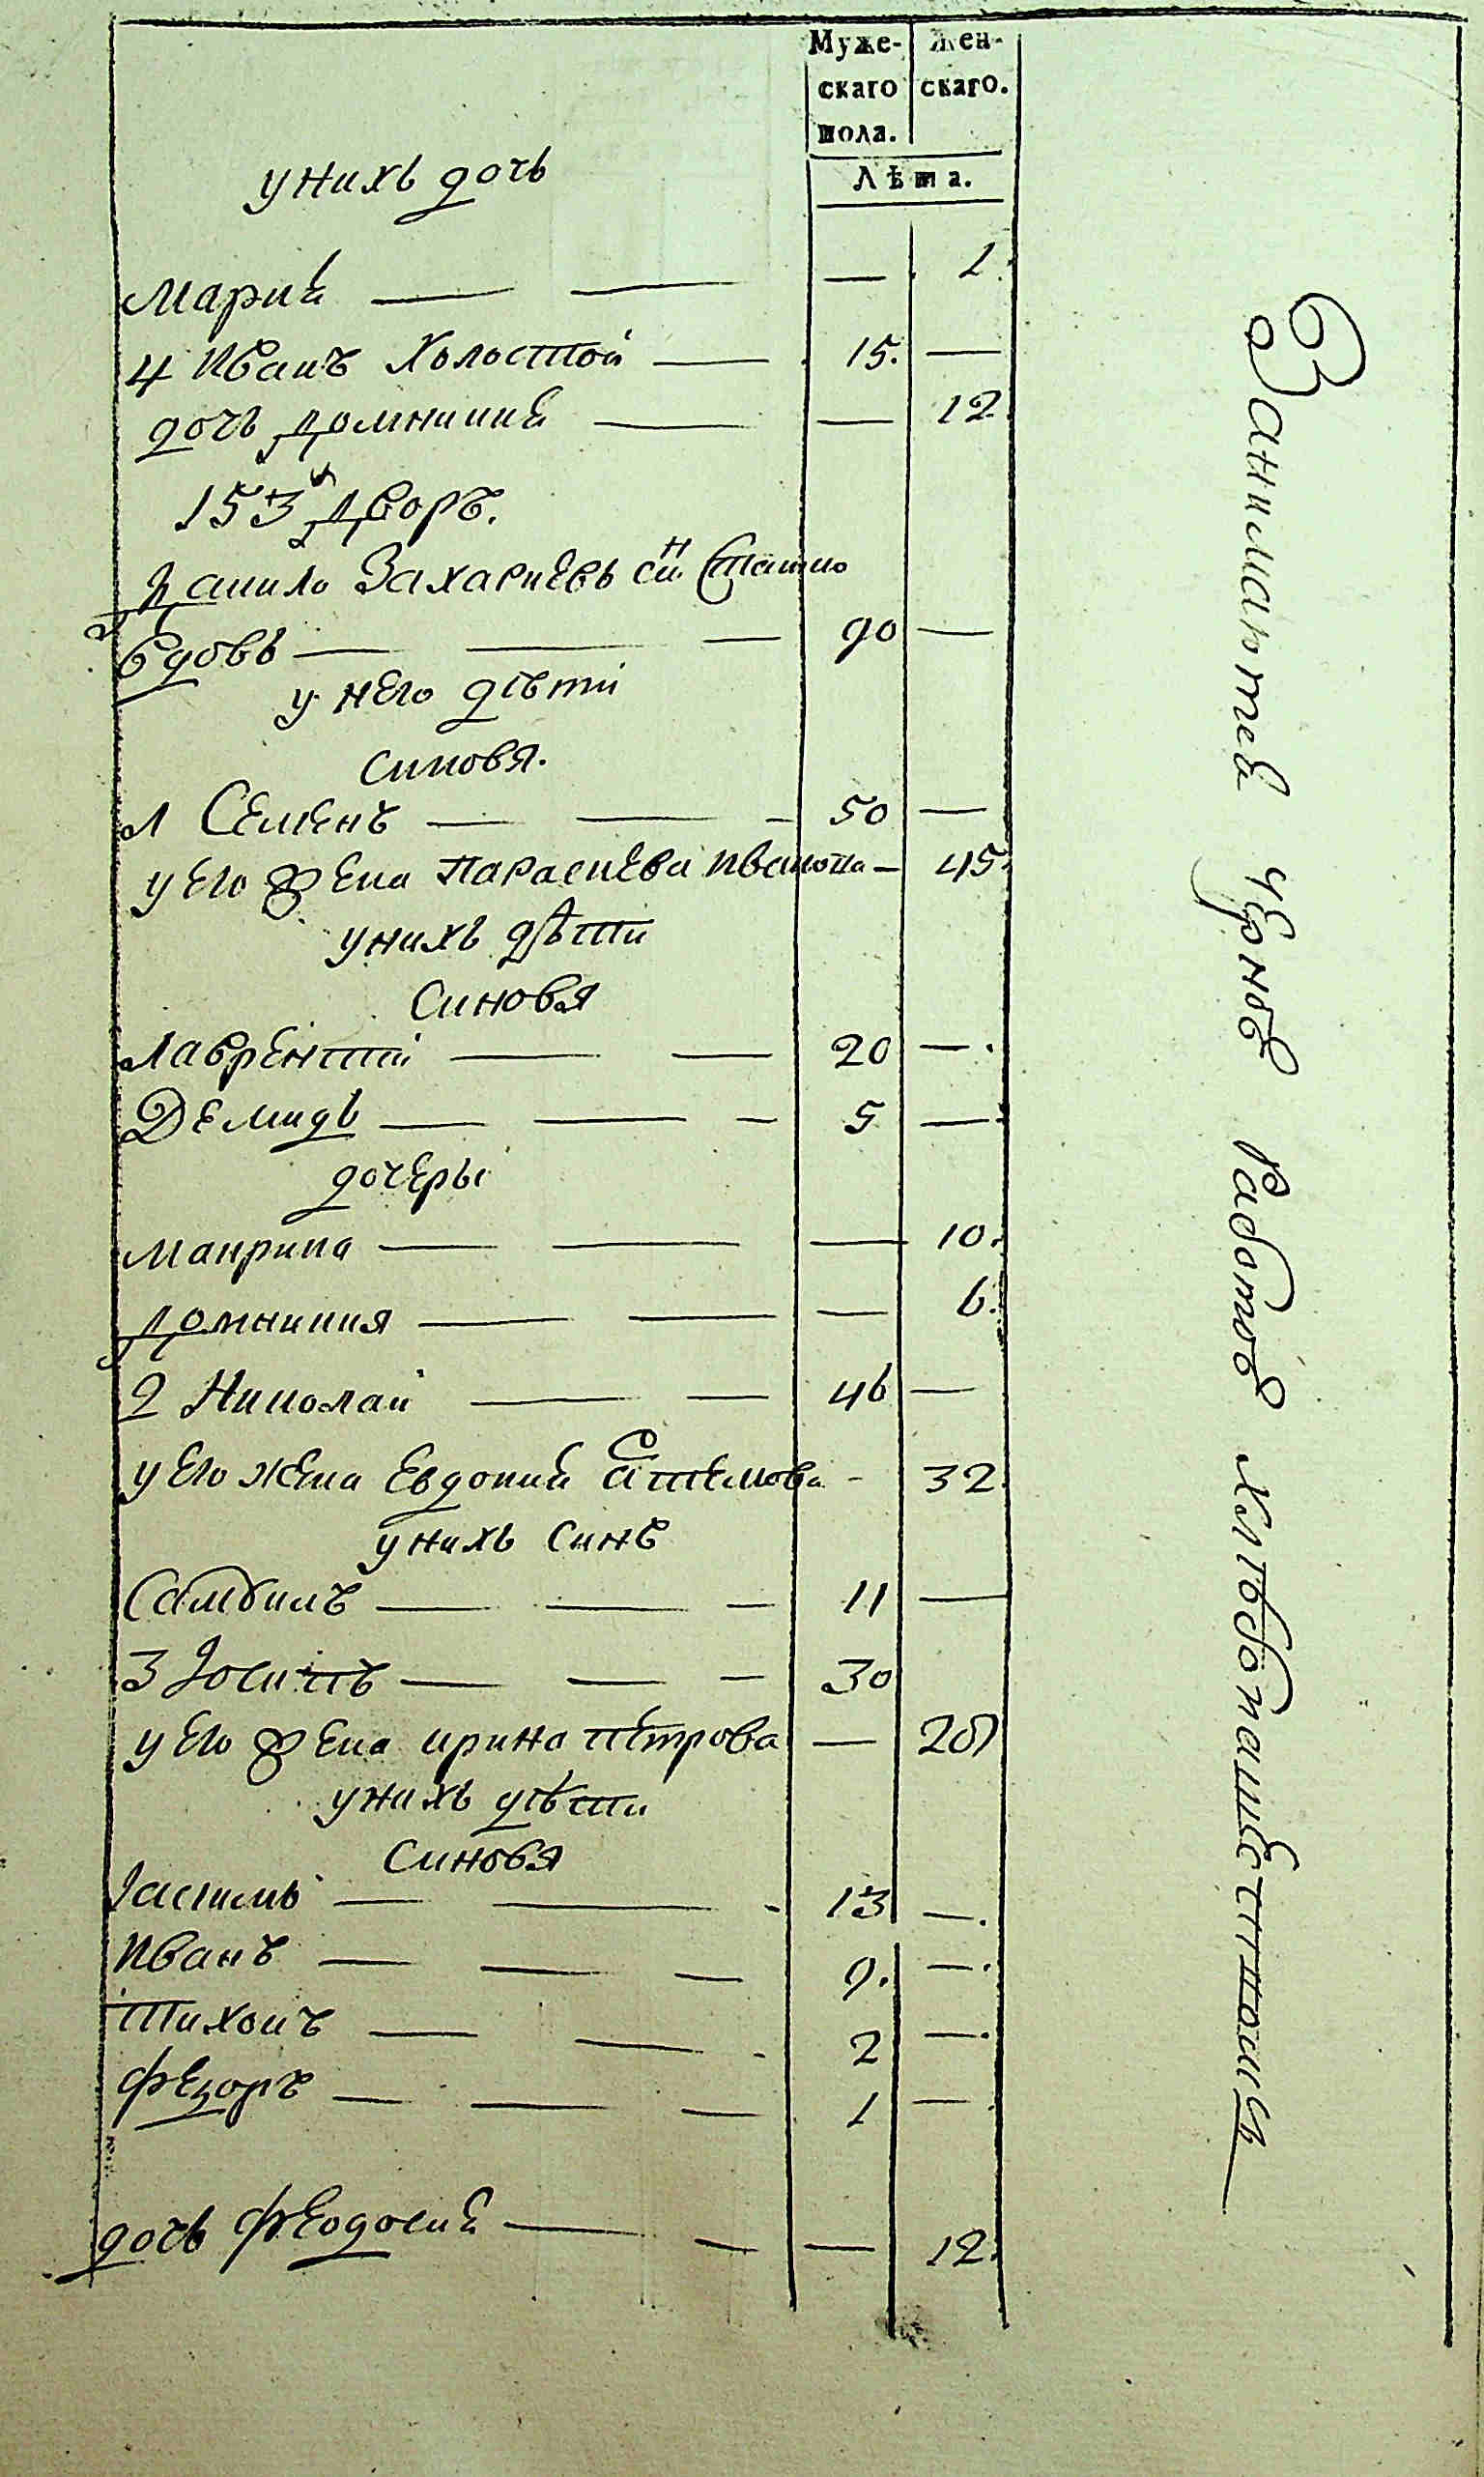 Муже-
скаго
пола.
Жен-
скаго.
Лѣта.
у нихъ дочь
Мария — — — 1.
4 Иванъ Холостой — 15. —
дочь Домникия — — 12.
153й Дворъ.
Данило Захариевъ снъ
Вдовъ — — — 90 —
у него дѣти
синовя.
1 Семенъ — — - 50 —
у его жена Параскева Иванова — 45.
у нихъ дѣти
Синовя
Лаврентий — — 20 — .
Демидъ — — — 5 —
дочеры
Маврина — — — 10.
Домникия — — — 6.
2 Николай — — 46 —
у его жена Евдокия - 32.
у нихъ синъ
Самоилъ — — — 11 —
3 Іосипъ — — — 30
у его жена Ирина Петрова — 28
у нихъ дѣти
Синовя
— — - 13 — .
Иванъ — — — 9. — .
Тихонъ — — - 2 — .
Федоръ — — — 1 —
дочь Феодосия — — — 12.
Занимаютсѧ чорной работой хлѣбопашествомъ